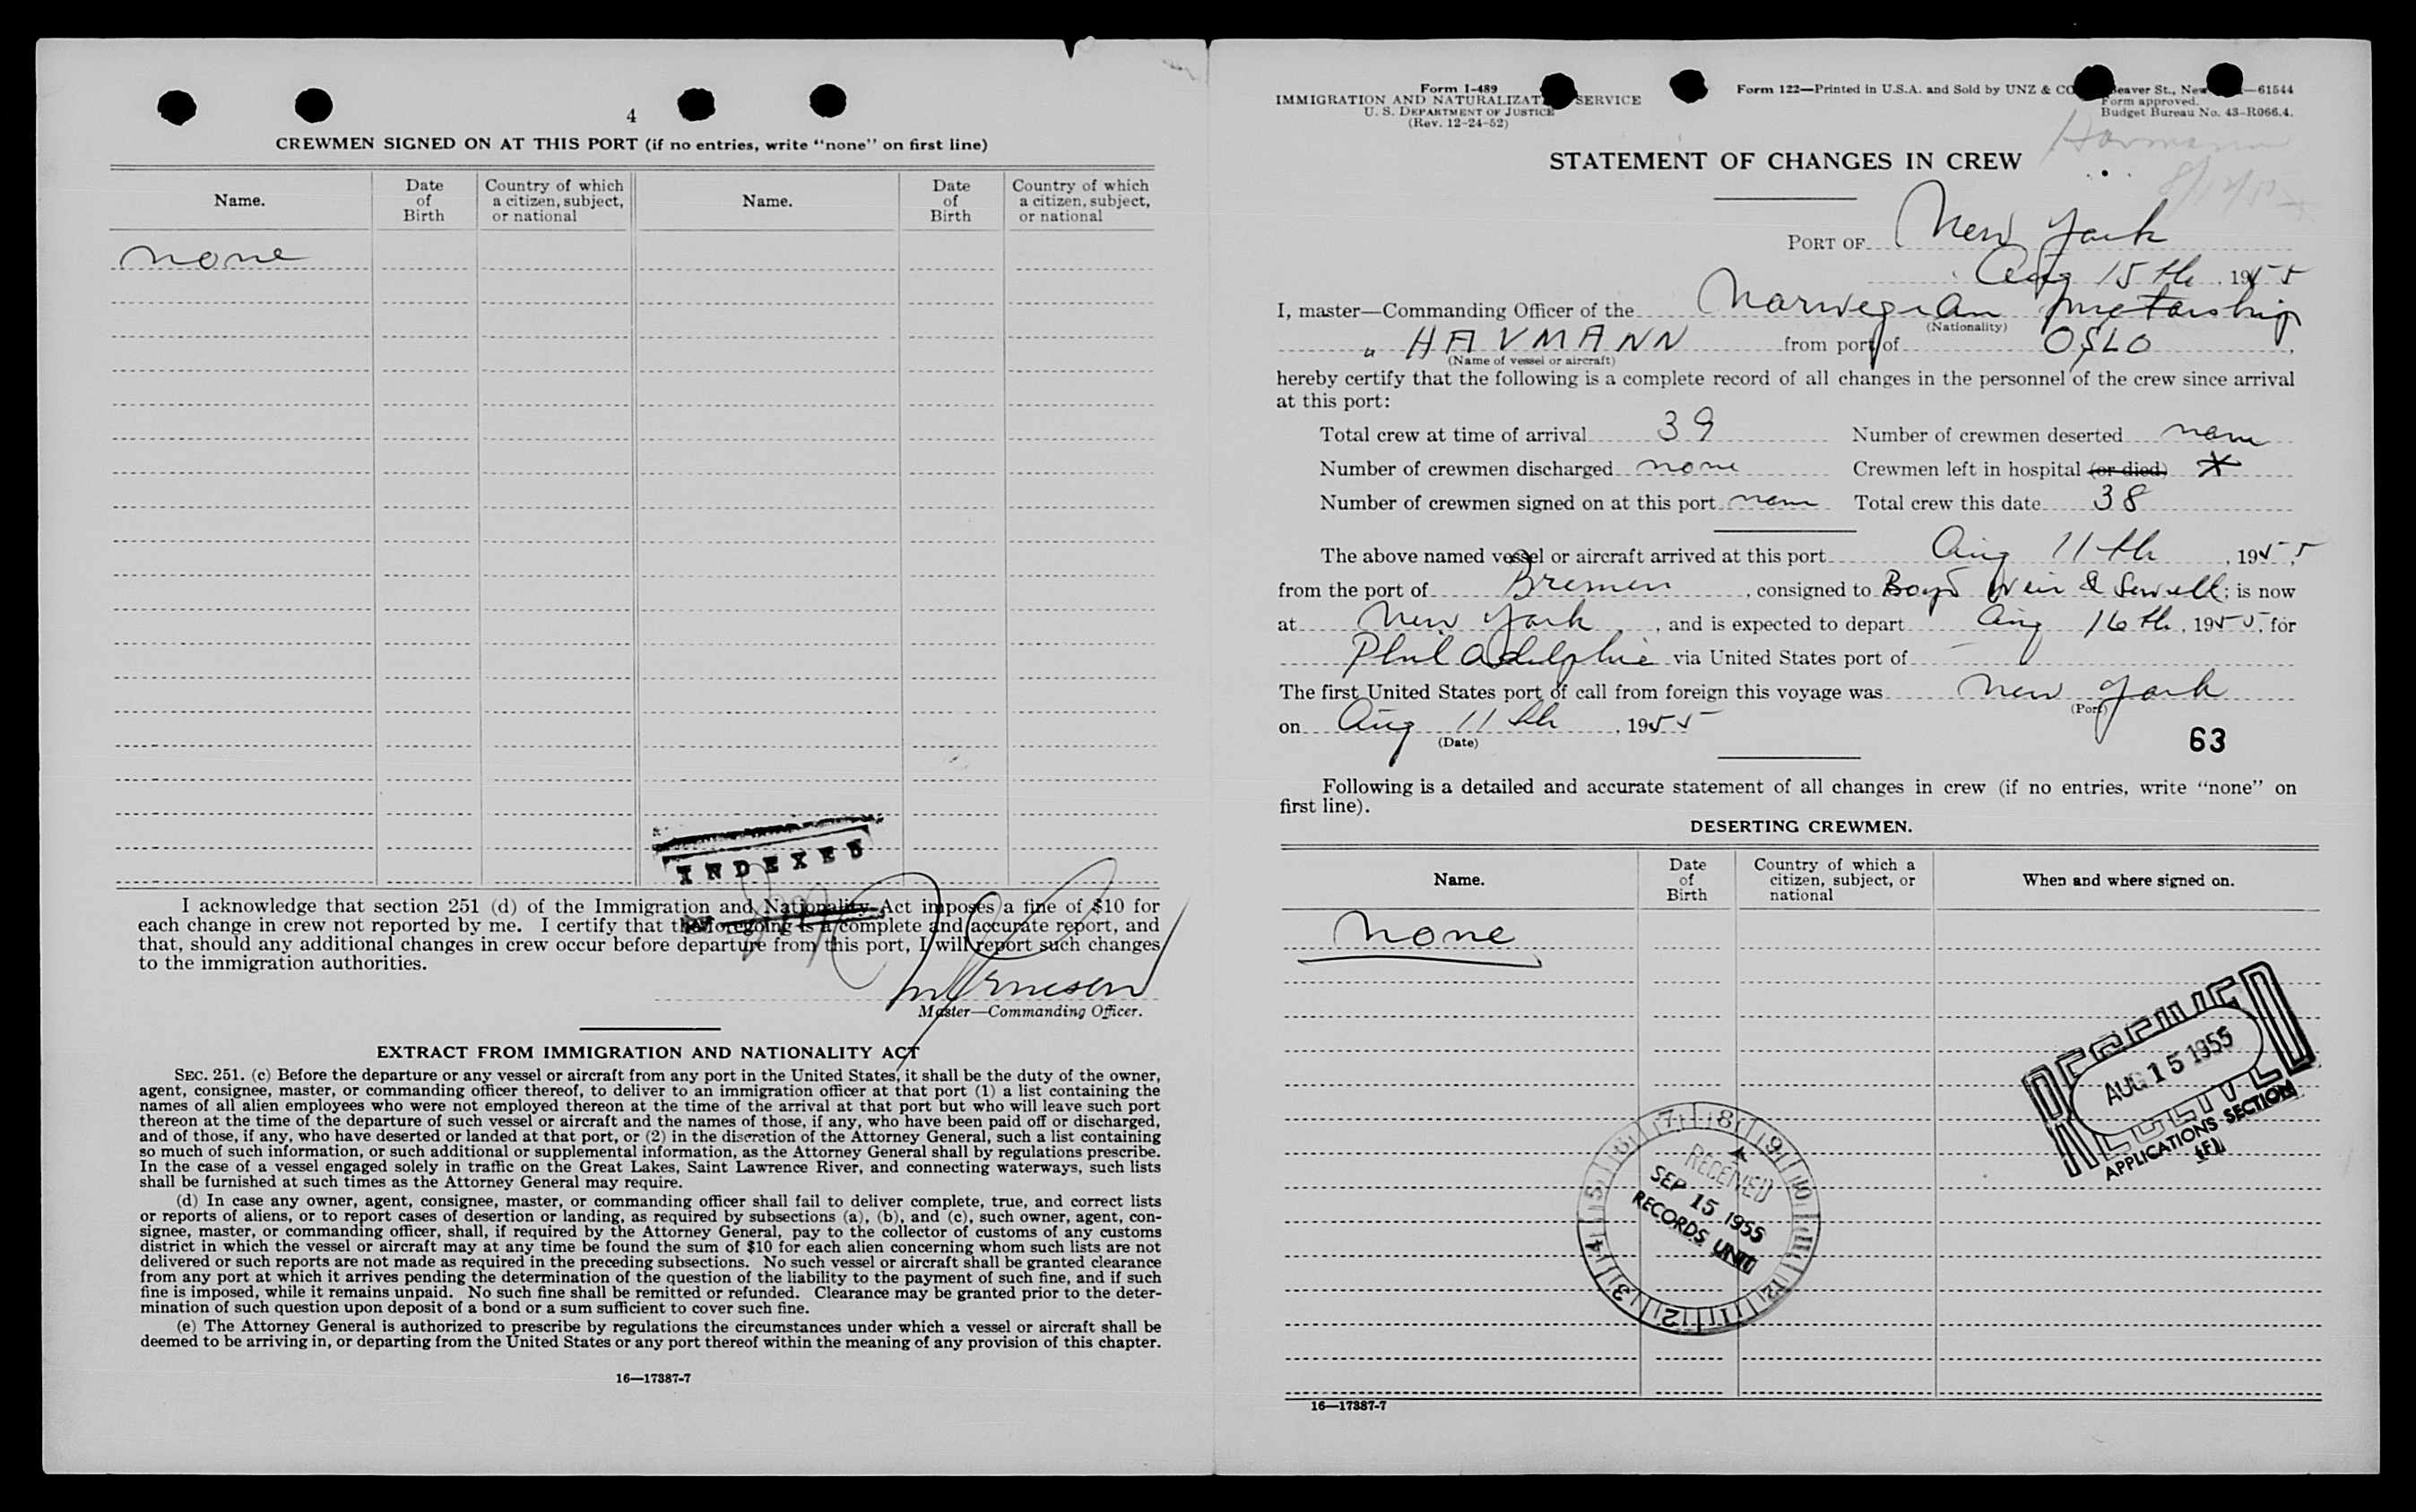 4
CREWMEN SIGNED ON AT THIS PORT (if no entries, write "none" on first line)
Name. Date of Birth Country of which a citizen, subject, or national Name. Date of Birth Country of which a citizen, subject, or national
none
INDEXED
I acknowledge that section 251 (d) of the Immigration and Nationality Act imposes a fine of $10 for
each change in crew not reported by me. I certify that the foregoing is a complete and accurate report, and
that, should any additional changes in crew occur before departure from this port, I will report such changes
to the immigration authorities.
Master—Commanding Officer.
EXTRACT FROM IMMIGRATION AND NATIONALITY ACT
SEC. 251. (c) Before the departure or any vessel or aircraft from any port in the United States, it shall be the duty of the owner,
agent, consignee, master, or commanding officer thereof, to deliver to an immigration officer at that port (1) a list containing the
names of all alien employees who were not employed thereon at the time of the arrival at that port but who will leave such port
thereon at the time of the departure of such vessel or aircraft and the names of those, if any, who have been paid off or discharged,
and of those, if any, who have deserted or landed at that port, or (2) in the discretion of the Attorney General, such a list containing
so much of such information, or such additional or supplemental information, as the Attorney General shall by regulations prescribe.
In the case of a vessel engaged solely in traffic on the Great Lakes, Saint Lawrence River, and connecting waterways, such lists
shall be furnished at such times as the Attorney General may require.
(d) In case any owner, agent, consignee, master, or commanding officer shall fail to deliver complete, true, and correct lists
or reports of aliens, or to report cases of desertion or landing, as required by subsections (a), (b), and (c), such owner, agent, con-
signee, master, or commanding officer, shall, if required by the Attorney General, pay to the collector of customs of any customs
district in which the vessel or aircraft may at any time be found the sum of $10 for each alien concerning whom such lists are not
delivered or such reports are not made as required in the preceding subsections. No such vessel or aircraft shall be granted clearance
from any port at which it arrives pending the determination of the question of the liability to the payment of such fine, and if such
fine is imposed, while it remains unpaid. No such fine shall be remitted or refunded. Clearance may be granted prior to the deter-
mination of such question upon deposit of a bond or a sum sufficient to cover such fine.
(e) The Attorney General is authorized to prescribe by regulations the circumstances under which a vessel or aircraft shall be
deemed to be arriving in, or departing from the United States or any port thereof within the meaning of any provision of this chapter.
16—17387-7
Form I-489
IMMIGRATION AND NATURALIZATION SERVICE
U. S. DEPARTMENT OF JUSTICE
(Rev. 12-24-52)
Form 122—Printed in U.S.A. and Sold by UNZ & CO. Beaver St., New —61544
Form approved.
Budget Bureau No. 43-R066.4.
STATEMENT OF CHANGES IN CREW
PORT OF New York
Aug 15th, 1955
I, master—Commanding Officer of the Norwegian motorship
(Nationality)
" HAVMANN from port of OSLO,
(Name of vessel or aircraft)
hereby certify that the following is a complete record of all changes in the personnel of the crew since arrival
at this port:
Total crew at time of arrival 39 Number of crewmen deserted none
Number of crewmen discharged none Crewmen left in hospital (or died) X
Number of crewmen signed on at this port none Total crew this date 38
The above named vessel or aircraft arrived at this port Aug 11th, 1955,
from the port of Bremen, consigned to Boyd Weir & Sewell; is now
at New York, and is expected to depart Aug 16th, 1955, for
Philadelphie via United States port of —
The first United States port of call from foreign this voyage was New York
(Port)
on Aug 11th, 1955
(Date)
63
Following is a detailed and accurate statement of all changes in crew (if no entries, write "none" on
first line).
DESERTING CREWMEN.
Name. Date of Birth Country of which a citizen, subject, or national When and where signed on.
None
RECEIVED
AUG 15 1955
APPLICATIONS SECTION
7 8 9 10 11 12 1 2 3 4 5 6
RECEIVED
SEP 15 1955
RECORDS UNIT
16—17387-7